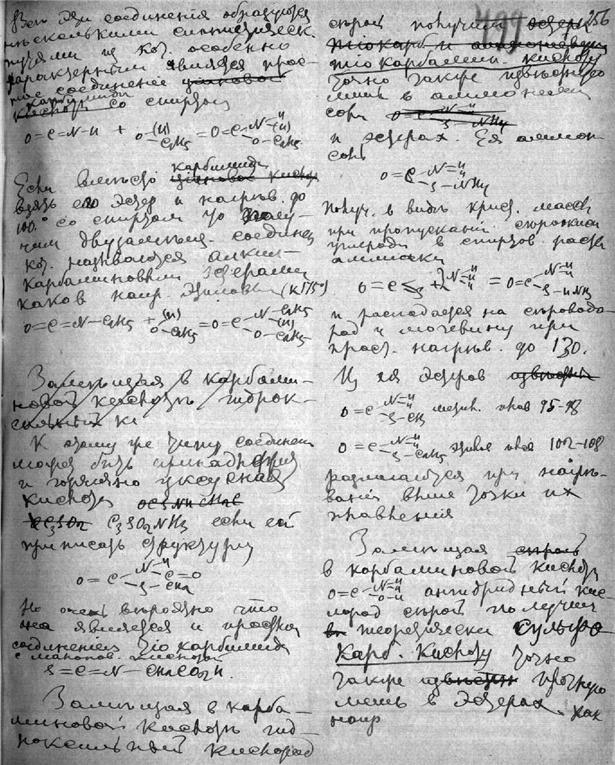 Все эти соединения образуются
несколькими синтетическ.
путями из кот. особенно
характерным является прос-
тое соединение циановой
карбимида
кислоты со спиртом
O=C=N-H + O(H)-C₂H₅ = O=C-N=H(H) O-C₂H₅
Если вместо карбимида циановой кислоты
взять его эфир и нагрев. до
100° со спиртом то полу-
чим двузамещ. соединен
кот. называются алкил-
карбаминовыми эфирами
каков напр. этиловый
O=C=N-C₂H₅ + (H) O-C₂H₅ = O=C-N-C₂H₅ (H) O-C₂H₅
Замещая в карбами-
новой кислоте гидрок-
сильный ки
К этому же типу соединен
может быть принадлежит
и горчично уксусная
кислота
C₃SO₂NH₃ если ей
приписать структуру
O=C N-H C=O S-CH₂
Но очень вероятно что
она является и простым
соединением тиокарбимида
S=C=N-CH₂CO₂H.
Замещая в карба-
миновой кислоте гид-
роксильный кислород
499 256
серой получим эфиры
тиокарб
тиокарбамин. кислоту
точно также известную
лишь в аммонийной
соли
и эфирах. Ея аммон
соль
O=C N=H H S-NH₄
получ. в виде крист. массы
при пропускании сероокиси
углерода в спиртов. раств
аммиака
O=C=S + 2N=H H H = O=C N=H H S-HNH₃
и распадается на сероводо-
род и мочевину при
прост. нагрев. до 130.
Из ея эфиров известны
O=C N=H H S-CH₃ метил. плав 95-98
O=C N=H H S-C₂H₅ этилов плав 102-108
разлагаются при нагре-
вании выше точки их
плавления
Замещая серой
в карбаминовой кислоте
O=C N=H H O-H ангидридный кис-
лород серой получим
теоретически сульфо-
карб. кислоту точно
также известн прочную
лишь в эфирах. как
напр